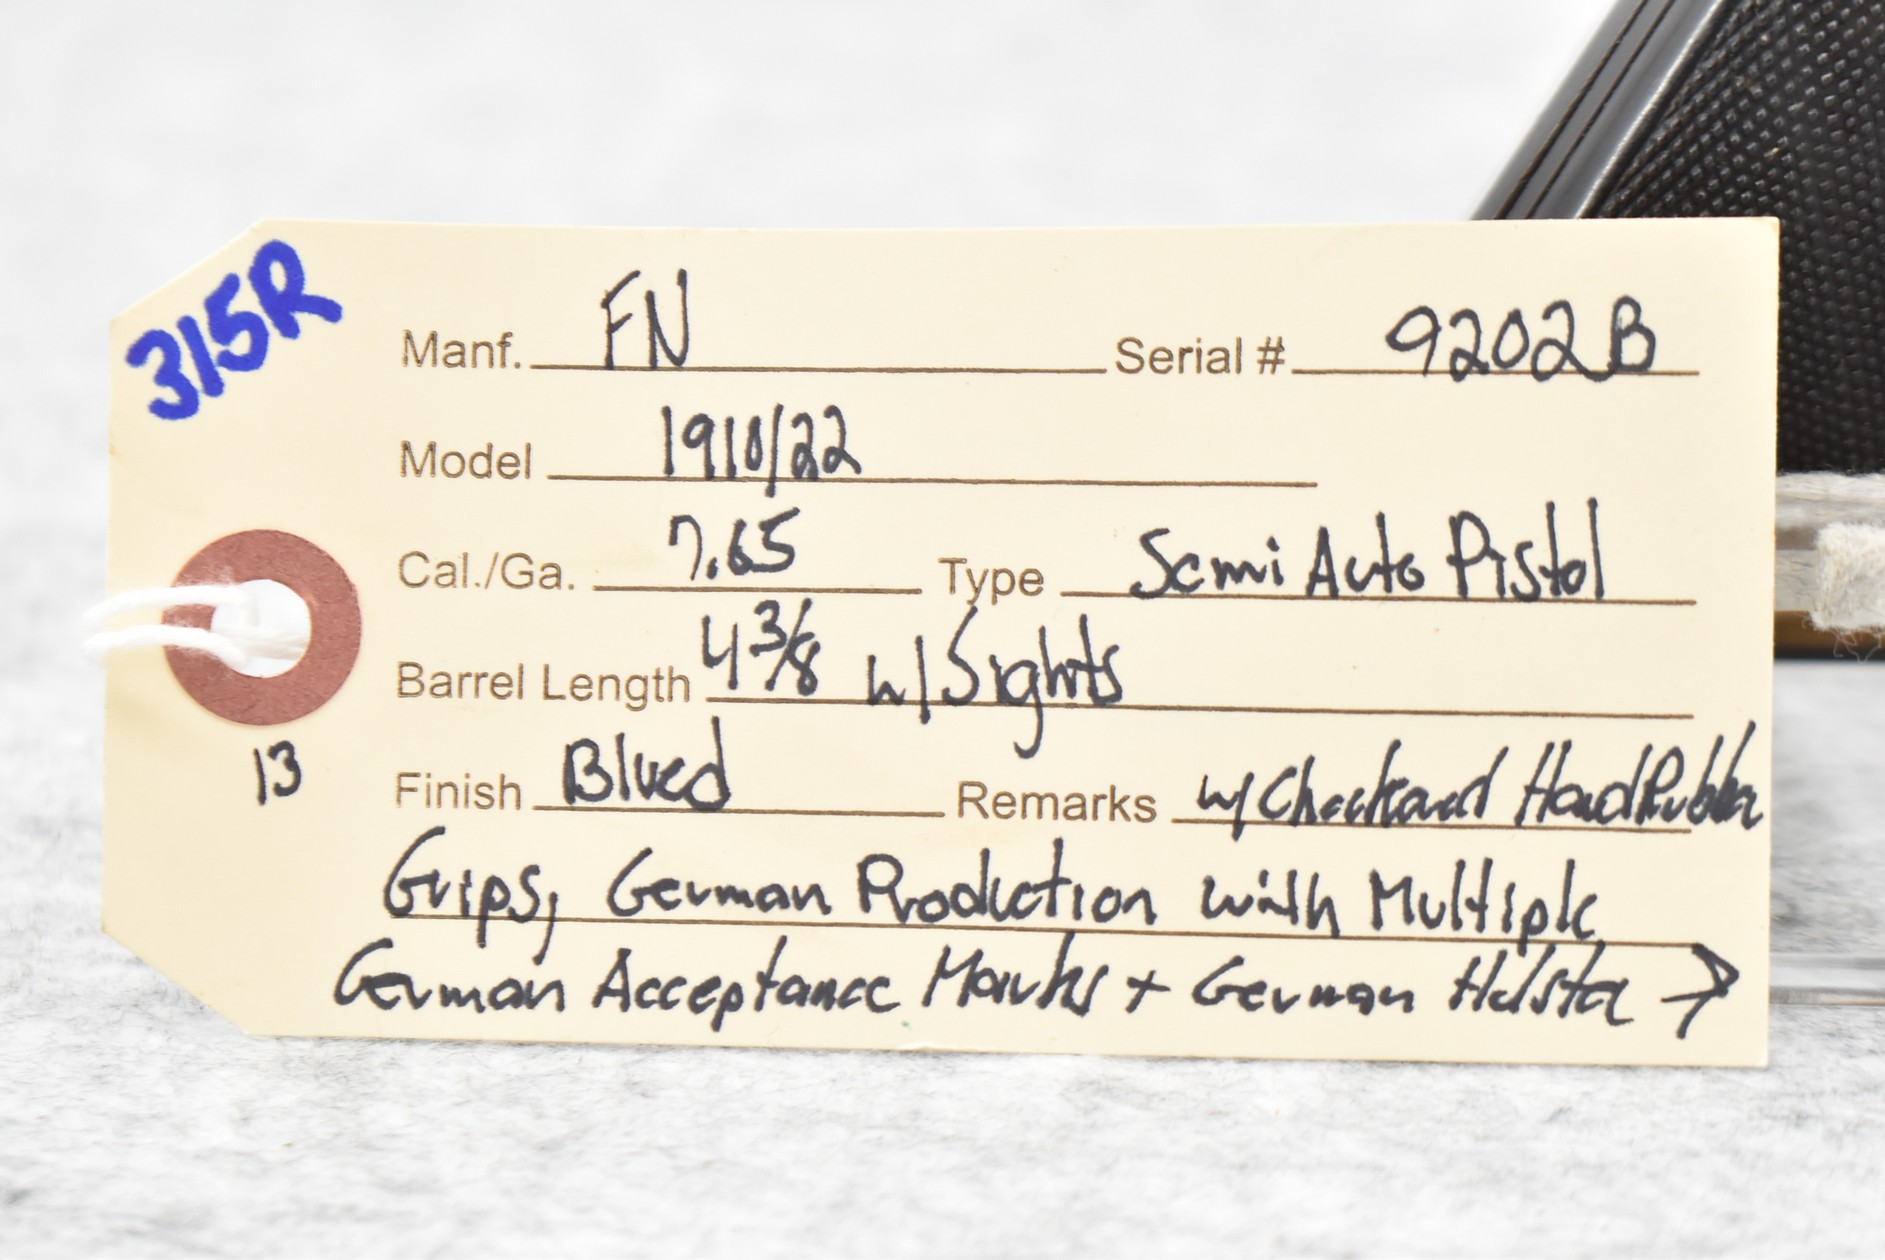 315R
Manf. FN Serial # 9202B
Model 1910/22
Cal./Ga. 7.65 Type Semi Auto Pistol
Barrel Length 4 3/8 w/ Sights
13
Finish Blued Remarks w/ Checkered Hard Rubber
Grips, German Production with Multiple
German Acceptance Marks + German Holster →